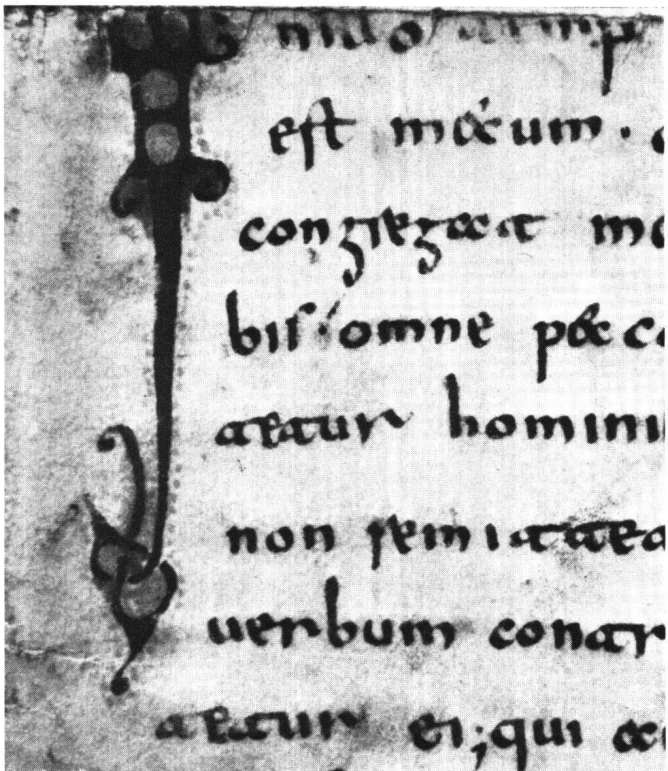 est mecum ·
congregat me
bis· omne pecc
tetur homini
non remittet
uerbum contr
tetur ei; qui